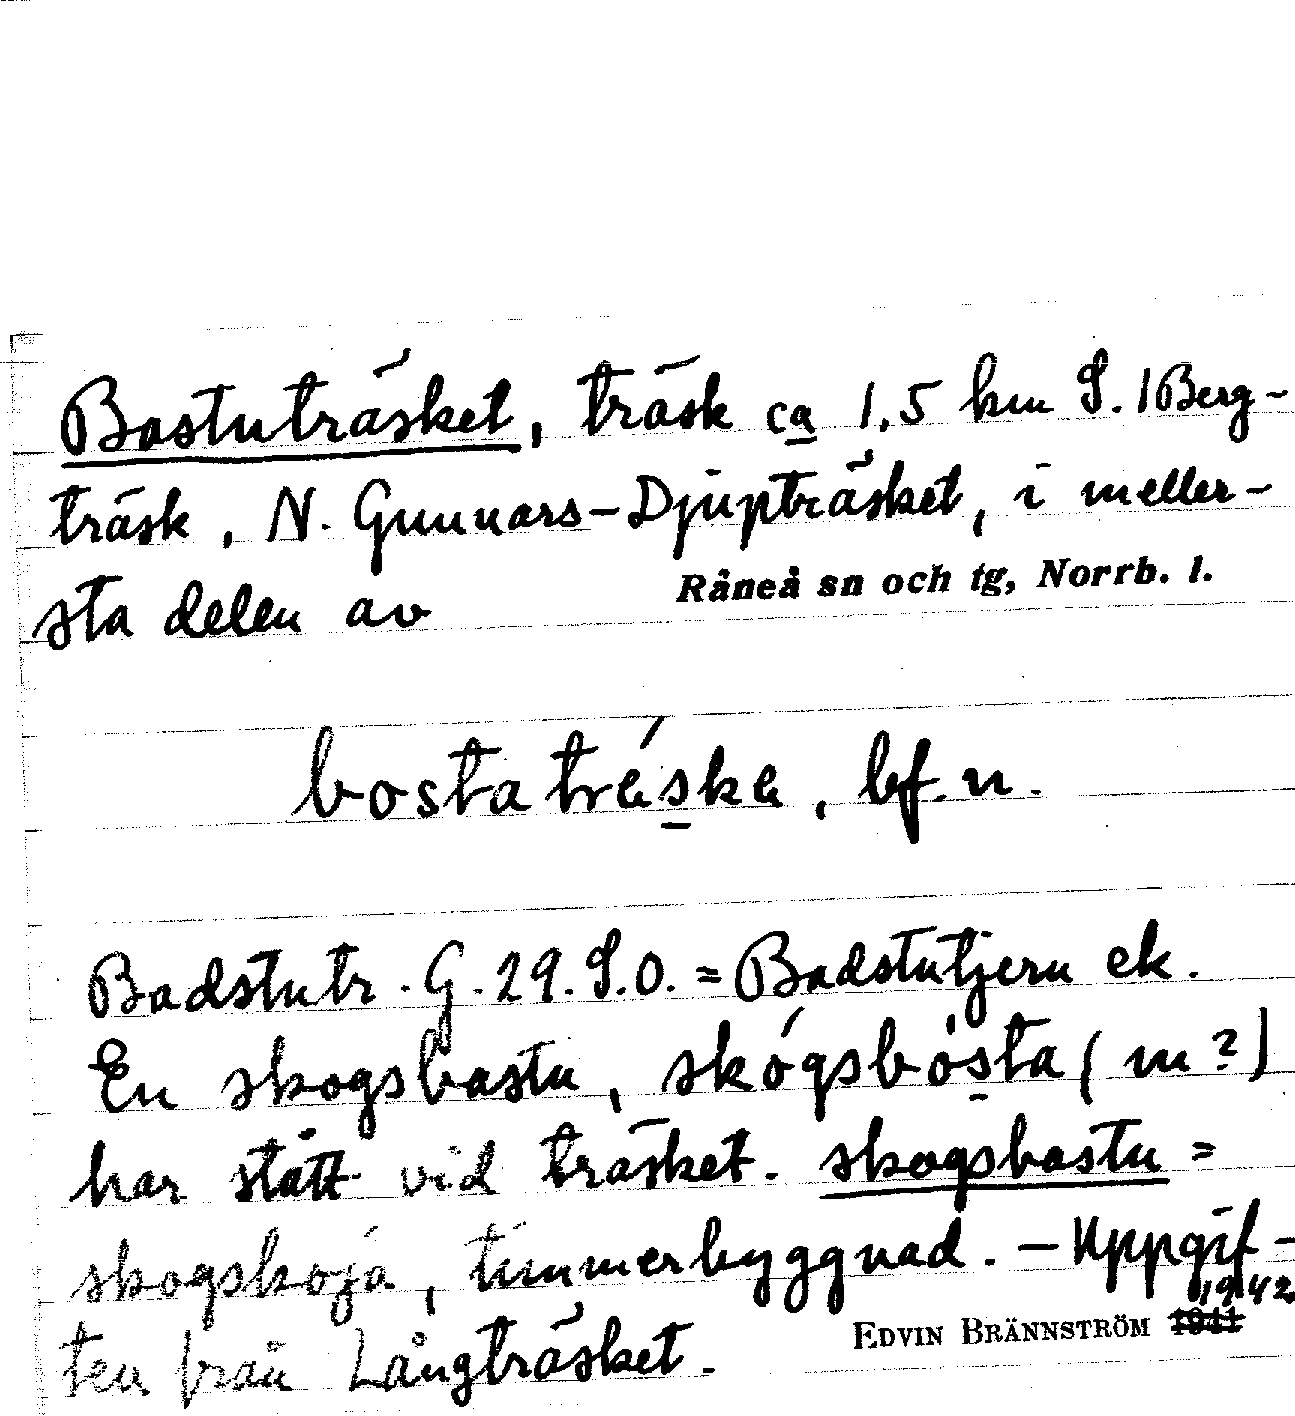 Bastuträsket, träsk ca 1,5 km S. 1 Berg-
träsk, N. Gunnars-Djupträsket, i meller-
sta delen av Råneå sn och tg, Norrb. l.
bostatráska, bf. n.
Badstutr. G. 29. S.O. = Badstutjern ek.
En skogsbastu, skógsbósta (m?)
har stått vid träsket. skogsbastu =
skogskoja, timmerbyggnad. - Uppgif-
ten från Långträsket. EDVIN BRÄNNSTRÖM 1941 1942